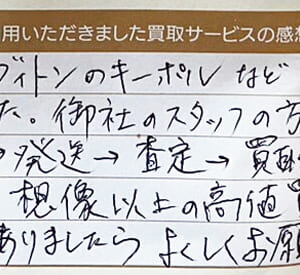 用いただきました買取サービスの感想
ヴィトンのキーポル など
た。御社のスタッフの方
発送→査定→買取
想像以上の高値買
ありましたら よくしくお願